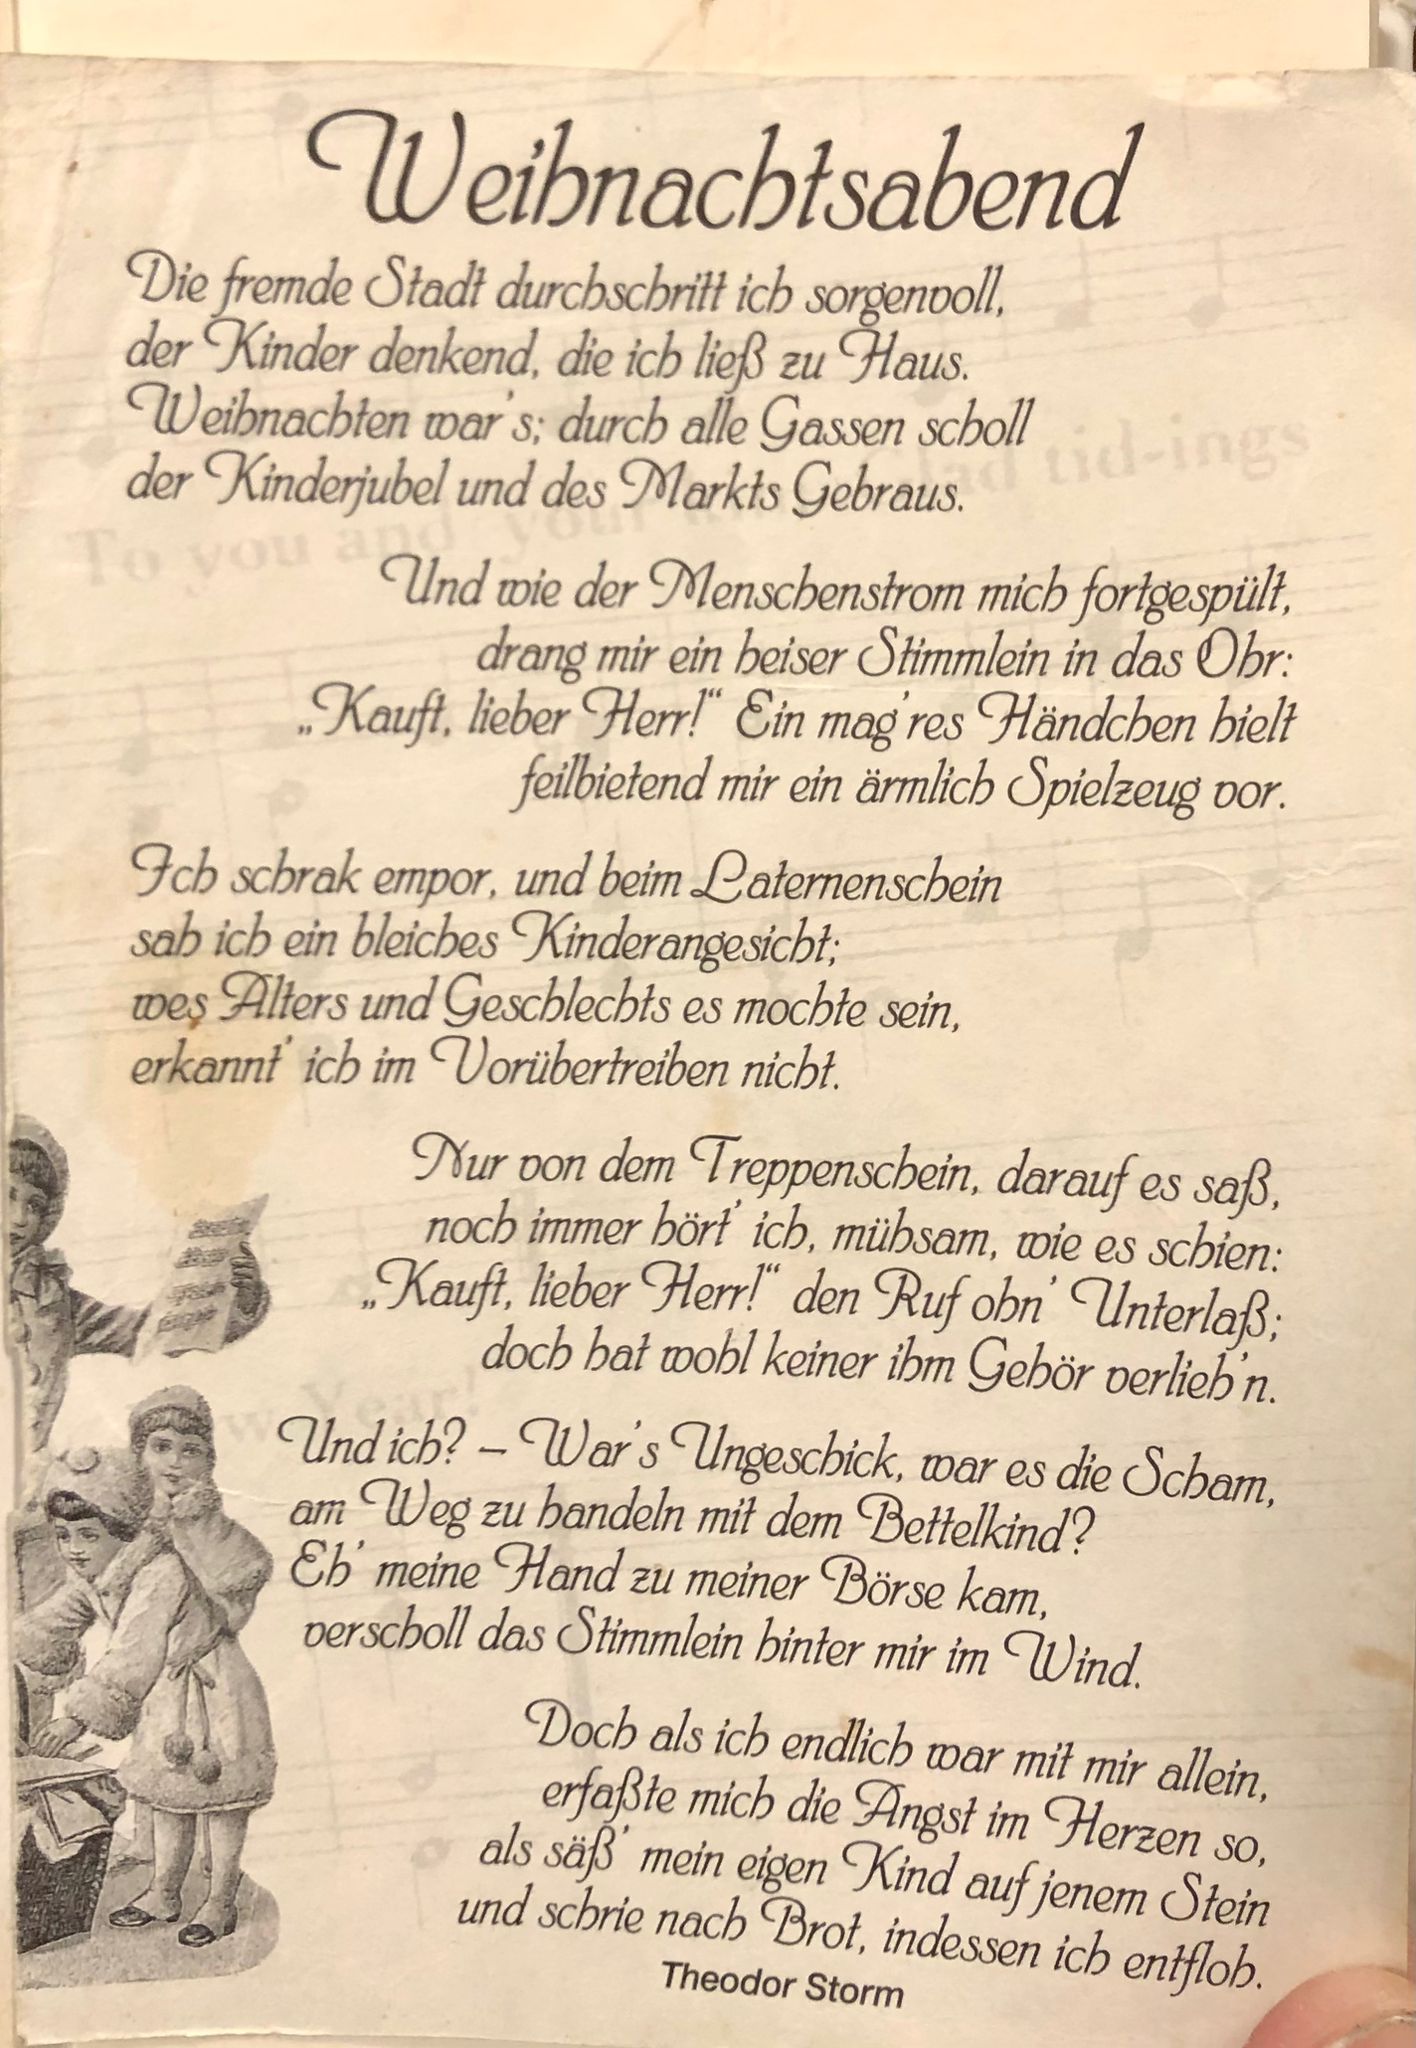 Weihnachtsabend
Die fremde Stadt durchschritt ich sorgenvoll,
der Kinder denkend, die ich ließ zu Haus.
Weihnachten war's; durch alle Gassen scholl
der Kinderjubel und des Markts Gebraus.
To you and your tid-ings
Und wie der Menschenstrom mich fortgespült,
drang mir ein heiser Stimmlein in das Ohr:
„Kauft, lieber Herr!“ Ein mag'res Händchen hielt
feilbietend mir ein ärmlich Spielzeug vor.
Ich schrak empor, und beim Laternenschein
sah ich ein bleiches Kinderangesicht;
wes Alters und Geschlechts es mochte sein,
erkannt' ich im Vorübertreiben nicht.
Nur von dem Treppenschein, darauf es saß,
noch immer hört' ich, mühsam, wie es schien:
„Kauft, lieber Herr!“ den Ruf ohn' Unterlaß;
doch hat wohl keiner ihm Gehör verlieh'n.
Und ich? – War's Ungeschick, war es die Scham,
am Weg zu handeln mit dem Bettelkind?
Eh' meine Hand zu meiner Börse kam,
verscholl das Stimmlein hinter mir im Wind.
Doch als ich endlich war mit mir allein,
erfaßte mich die Angst im Herzen so,
als säß' mein eigen Kind auf jenem Stein
und schrie nach Brot, indessen ich entfloh.
Theodor Storm